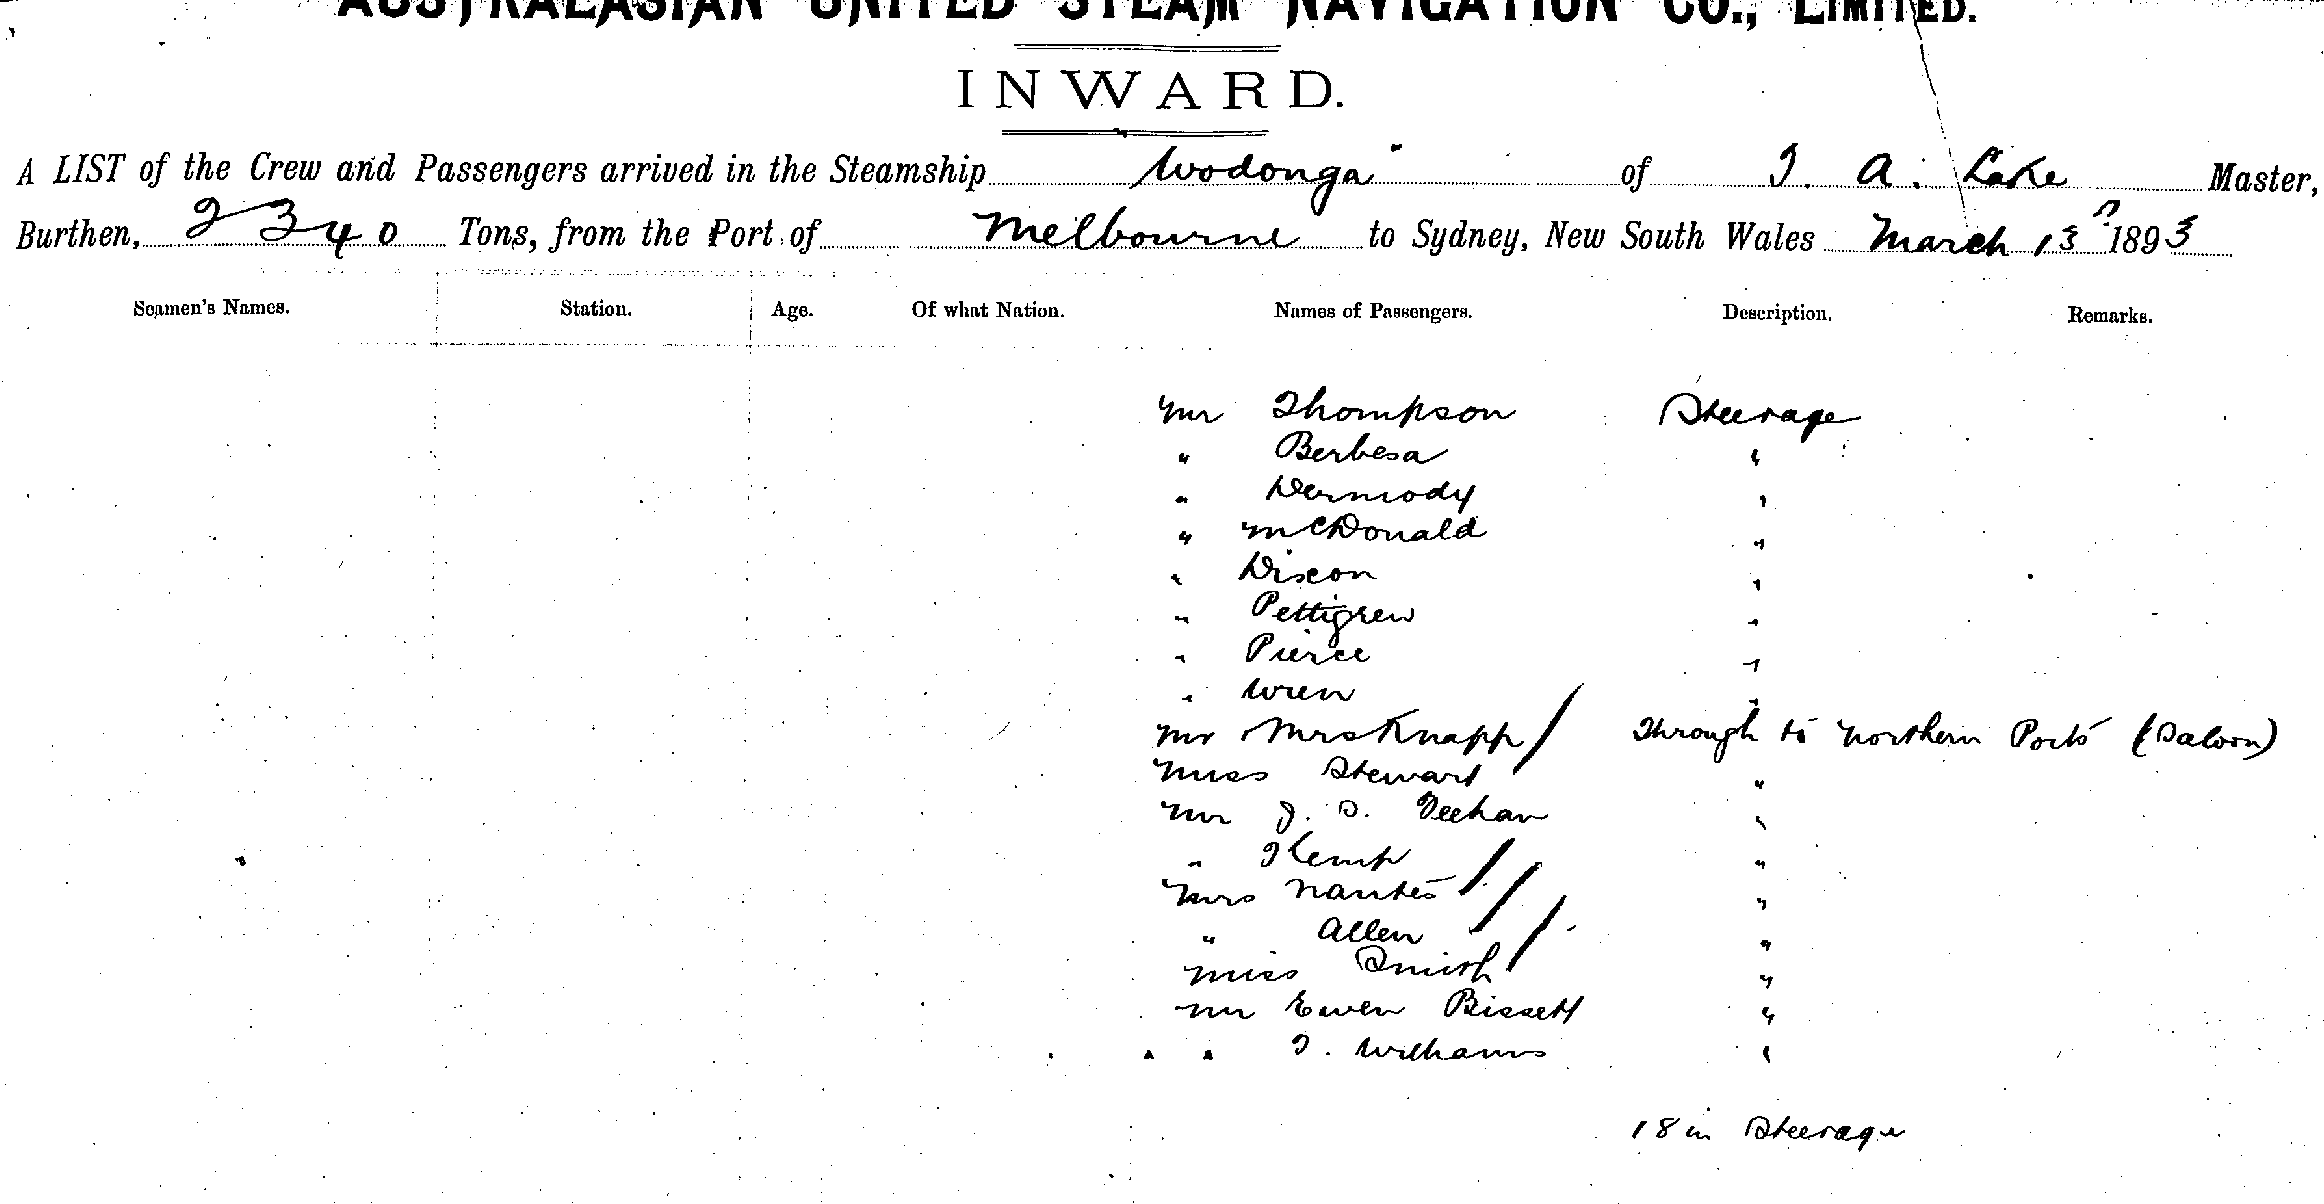 AUSTRALASIAN UNITED STEAM NAVIGATION CO., LIMITED.
INWARD.
A LIST of the Crew and Passengers arrived in the Steamship Wodonga of T. A. Lake Master,
Burthen, 2340 Tons, from the Port of Melbourne to Sydney, New South Wales March 13th 1893
Seamen's Names. Station. Age. Of what Nation. Names of Passengers. Description. Remarks.
Mr Thompson Steerage
" Berbesa "
" Dermody "
" McDonald "
" Dixon "
" Pettigrew "
" Pierce "
" Wren "
Mr Mrs Knapp / Through to Northern Ports (Saloon)
Miss Stewart "
Mr J. S. "
" Kemp / "
Mrs Nantes / "
" Allen / "
Miss Smith "
Mr Ewen Bissett "
" T. Williams "
18 in Steerage